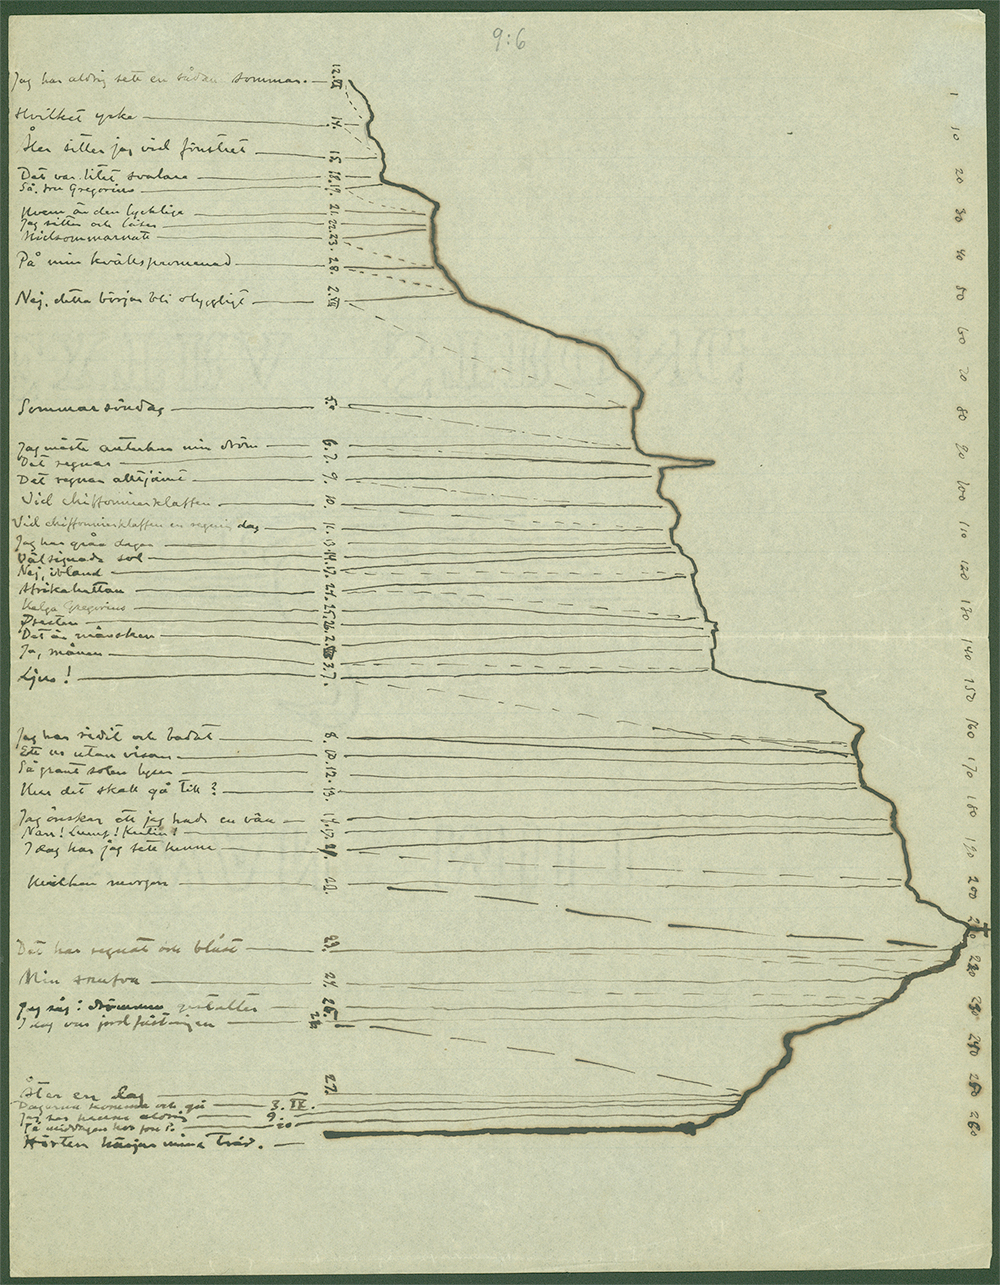 9:6
Jag har aldrig sett en sådan sommar. 12.VI
Hvilket yrke 14.
Här sitter jag vid fönstret 15.
Det var litet svalare 18.
Så, fru Gregorius 19.
Hvem är den lycklige 21.
Jag sitter och läser 22.
Midsommarnatt 23.
På min kvällspromenad 28.
Nej, detta börjar bli obyggligt 2.VII
Sommarsöndag 5.
Jag måste anteckna min dröm 6.
Det regnar 7.
Det regnar alltjämt 9.
Vid chiffonierklaffen 10.
Vid chiffonierklaffen en regnig dag 11.
Jag har gråa dagar 13.
Välsignade sol 14.
Nej, ibland 17.
Afrikahattan 24.
Helga Gregorius 25.
Prästen 26.
Det är månsken 2.VIII
Ja, månen 3.
Ljus! 7.
Jag har ridit och badat 8.
Ett os utan visan 10.
Så grant solen lyser 12.
Hur det skall gå till? 13.
Jag önskar att jag hade en vän 14.
Narr! Lump! 17.
I dag har jag sett henne
Hvilken morgon 22.
Det har regnat och blåst 23.
Min 24.
Jag såg: drömmens gestalter 25.
I dag var jordfästningen 26
Åter en dag 27.
Dagarna komma och gå 3.IX.
Jag ser henne aldrig 9.
På middagen hos fru P. 20
Hösten härjar mina träd.
1
10
20
30
40
50
60
70
80
90
100
110
120
130
140
150
160
170
180
190
200
220
230
240
250
260